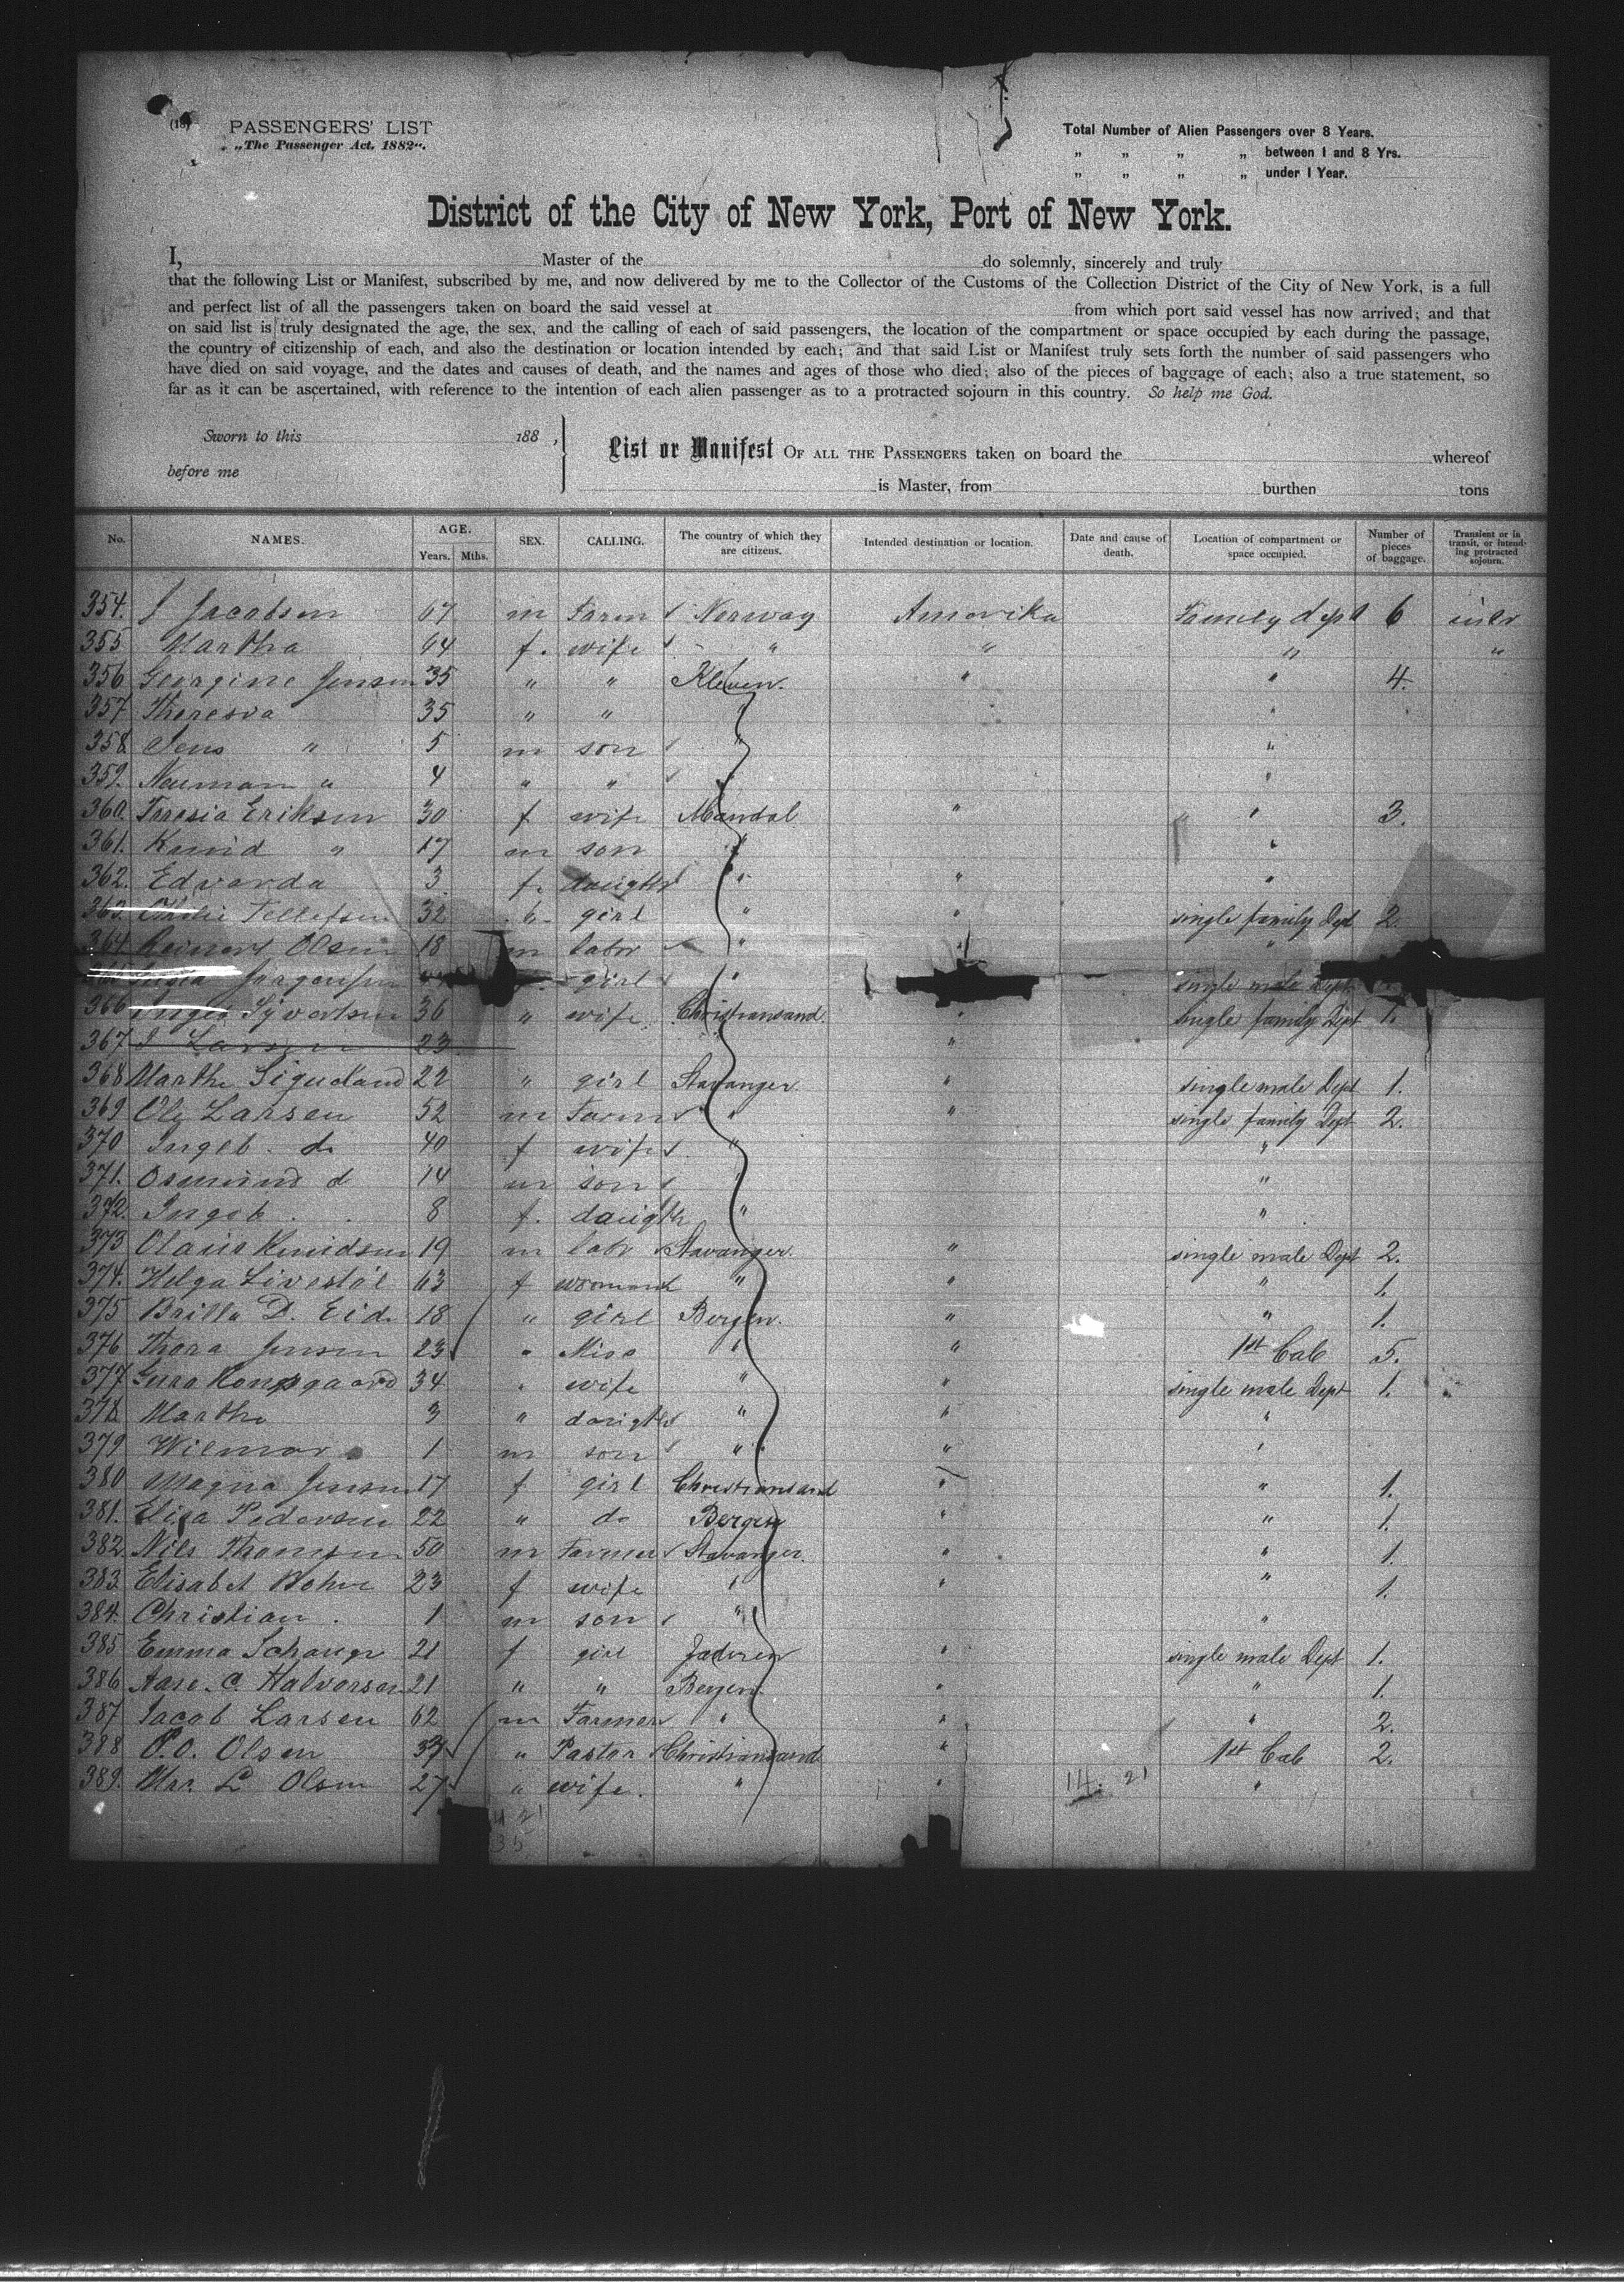 (18) PASSENGERS' LIST
„The Passenger Act. 1882“.
Total Number of Alien Passengers over 8 Years.
„ „ „ „ between 1 and 8 Yrs.
„ „ „ „ under 1 Year.
District of the City of New York, Port of New York.
I, Master of the do solemnly, sincerely and truly
that the following List or Manifest, subscribed by me, and now delivered by me to the Collector of the Customs of the Collection District of the City of New York, is a full
and perfect list of all the passengers taken on board the said vessel at from which port said vessel has now arrived; and that
on said list is truly designated the age, the sex, and the calling of each of said passengers, the location of the compartment or space occupied by each during the passage,
the country of citizenship of each, and also the destination or location intended by each; and that said List or Manifest truly sets forth the number of said passengers who
have died on said voyage, and the dates and causes of death, and the names and ages of those who died; also of the pieces of baggage of each; also a true statement, so
far as it can be ascertained, with reference to the intention of each alien passenger as to a protracted sojourn in this country. So help me God.
Sworn to this 188 ,
before me
List or Manifest OF ALL THE PASSENGERS taken on board the whereof
is Master, from burthen tons
No. NAMES. AGE. Years. Mths. SEX. CALLING. The country of which they are citizens. Intended destination or location. Date and cause of death. Location of compartment or space occupied. Number of pieces of baggage. Transient or in transit, or intending protracted sojourn.
354. J Jacobsen 67 m Farm Norway Amerika Family dept 6
355 Martha 64 f. wife " " " "
356 Georgine Jensen 35 " " Kleven. " " 4.
357 Theresia 35 " " " "
358 Jens " 5 m son " "
359. Neuman " 4 " " " "
360. Tarasia Eriksen 30 f wife Mandal " " 3.
361. Knud " 17 m son " "
362. Edvarda 3 f. daughtr " " "
363. Tellefsen 32 girl " " single family Dept 2.
364. Reinert Olsen 18 m labr " " "
Jorgensen girl " single male Dept
366 Syvertsen 36 " wife Christiansand. " single family Dept 1.
367 J Larsen 23 "
368 Marthe Sigueland 22 " girl Stavanger. " single male Dept 1.
369 Ole Larsen 52 m Farm " " single family Dept 2.
370 Ingeb. do 40 f wife " "
371. Osmund d 14 m son " "
372. Ingeb. 8 f. daughtr " "
373 Olaus Knudsen 19 m labr Stavanger. " single male Dept 2.
374. Helga Livestöl 63 f woman " " " 1.
375 Brilla D. Eid. 18 " girl Bergen. " " 1.
376 Thora Jensen 23 " Miss " " 1st Cab 5.
377 Guro Kongsgaard 34 " wife " " single male Dept 1.
378. Marthe 3 " daughtr " " "
379 Wilmar 1 m son " " "
380 Magna Jensen 17 f girl Christiansand " " 1.
381. Elisa Pedersen 22 " do Bergen " " 1.
382. Nils Thomsen 50 m Farmer Stavanger. " " 1.
383 Elisabet Bohne 23 f wife " " " 1.
384. Christian. 1 m son " "
385 Emma Schauge 21 f girl Jaderen " single male Dept 1.
386 Aase. C. Halvorsen 21 " " Bergen. " " 1.
387 Jacob Larsen 62 m Farmer " " " 2.
388 P.O. Olsen 37 " Pastor Christiansand " 1st Cab 2.
389. Mrs. L Olsen 27 " wife. " " "
14. 21